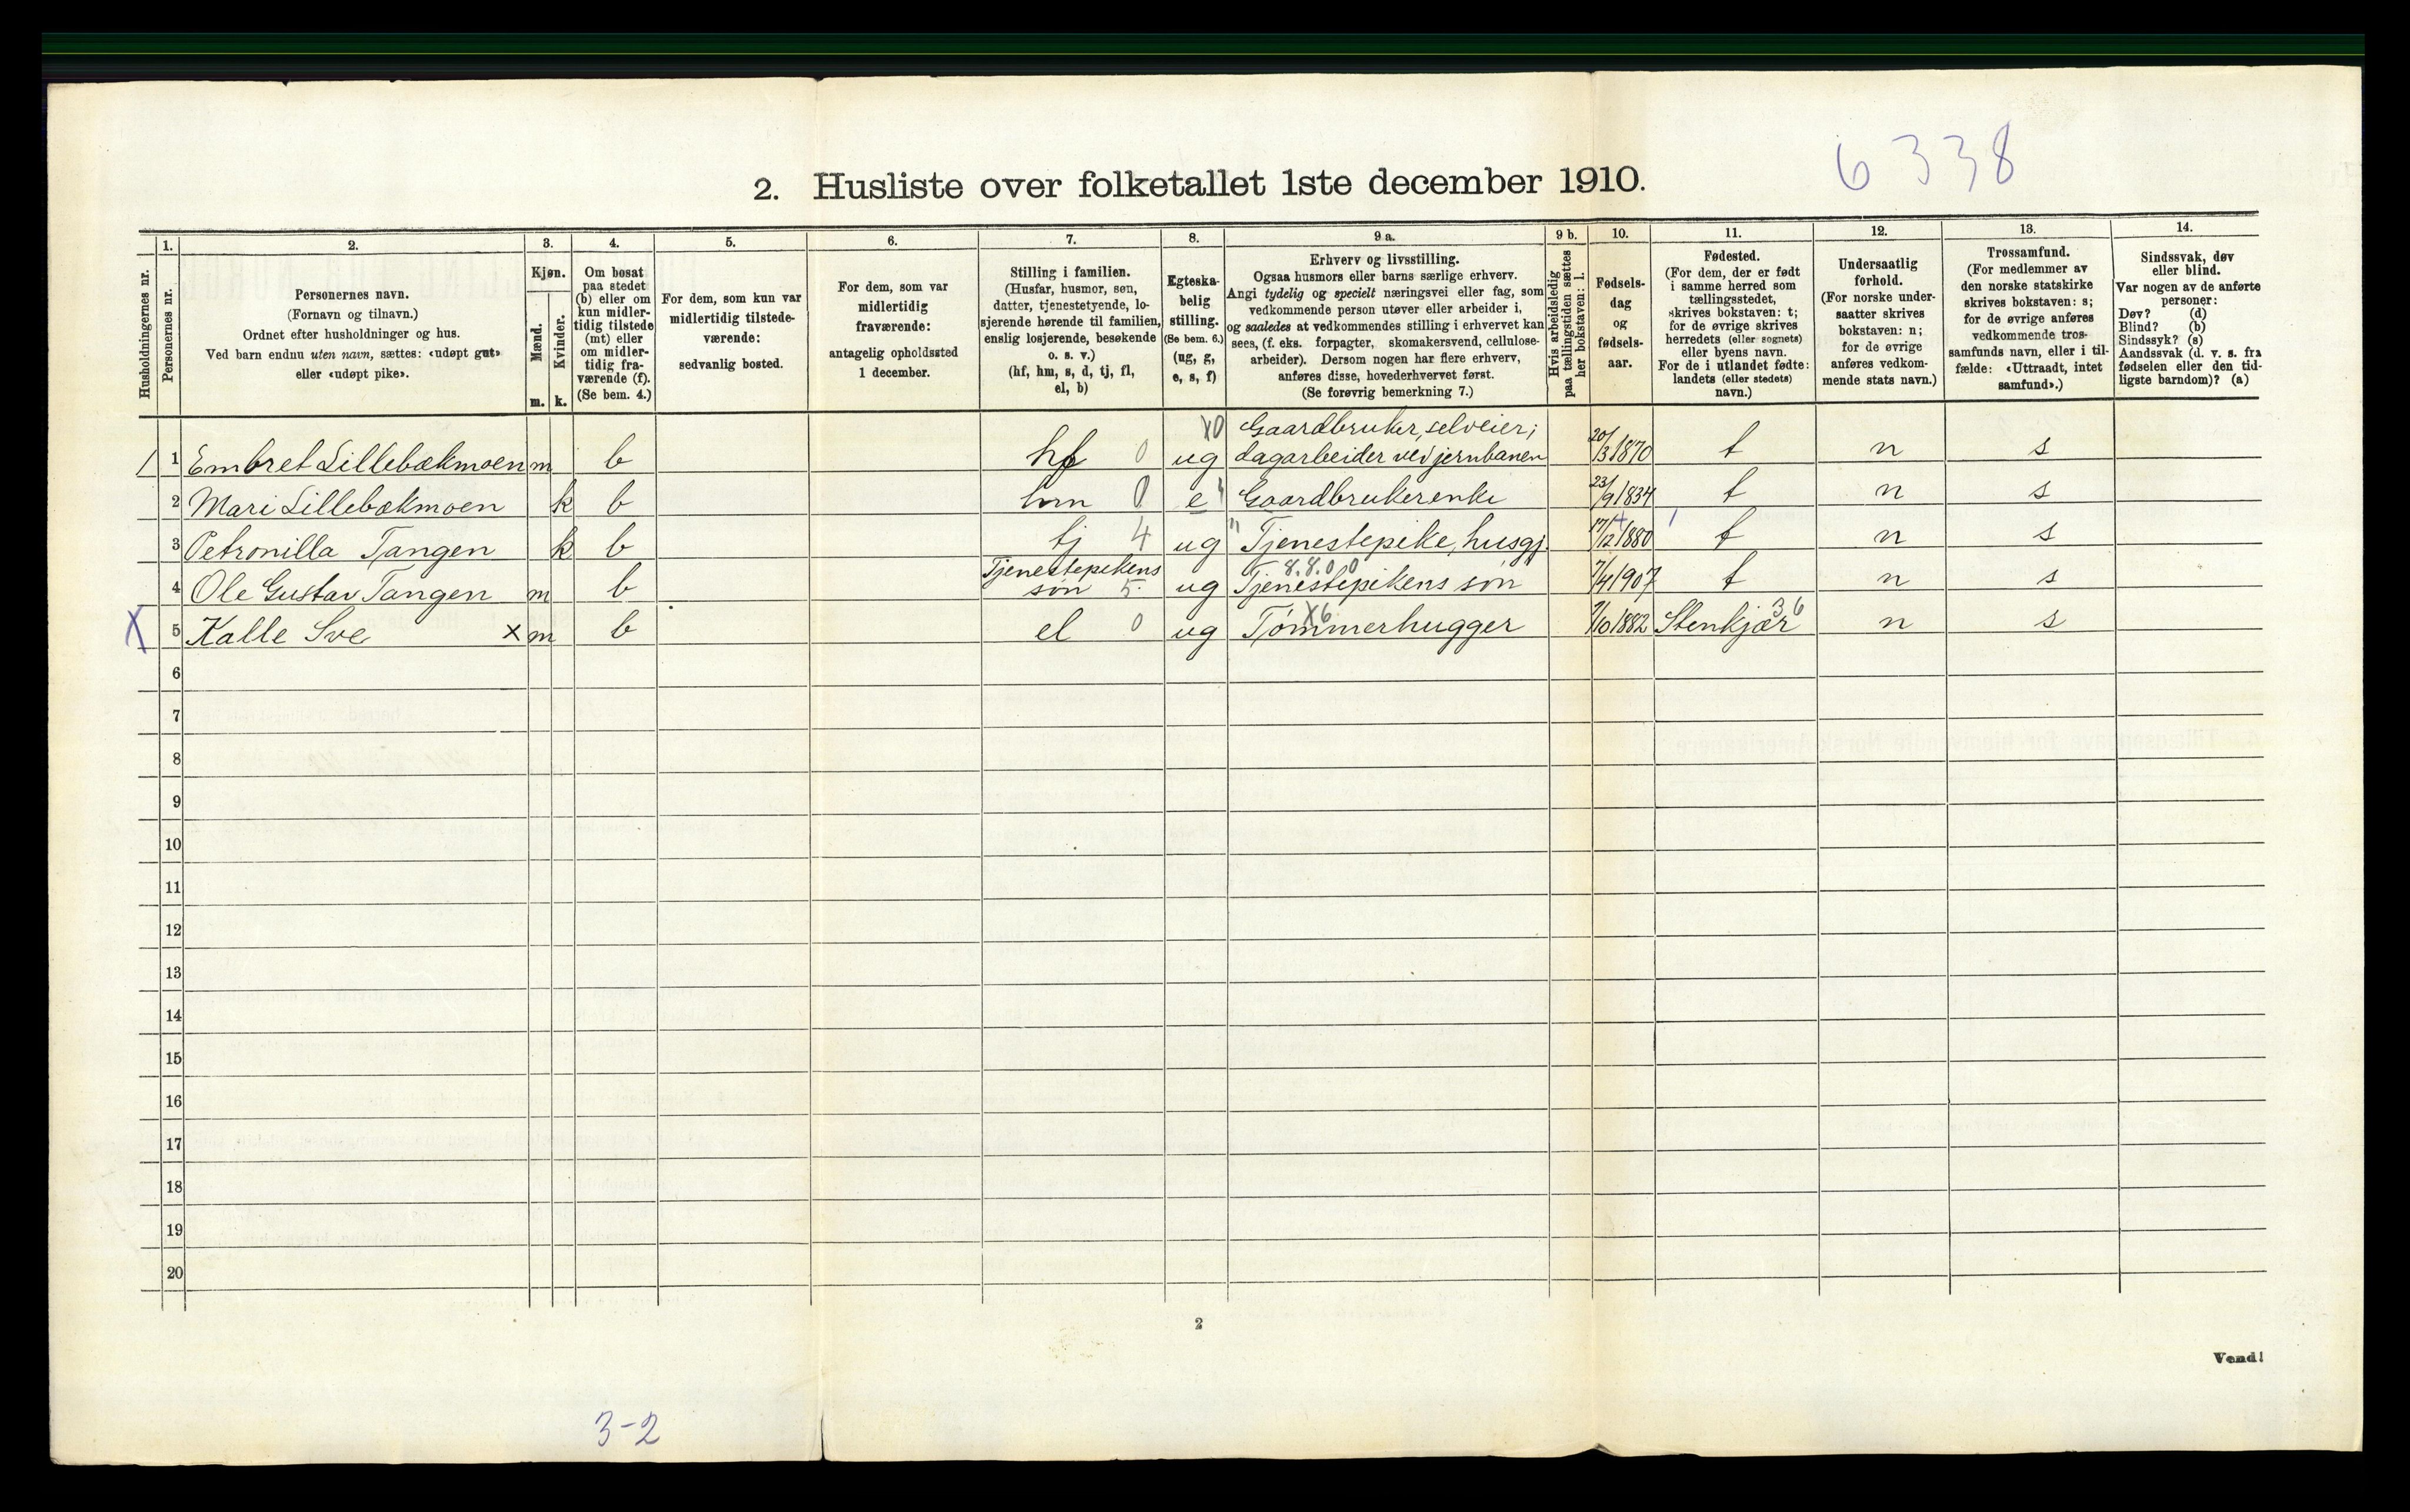 6338
2. Husliste over folketallet 1ste december 1910.
Husholdningernes nr.
1.
Personernes nr.
2.
Personernes navn.
(Fornavn og tilnavn.)
Ordnet efter husholdninger og hus.
Ved barn endnu uten navn, sættes: «udøpt gut»
eller «udøpt pike».
3.
Kjøn.
Mænd.
Kvinder.
m. k.
4.
Om bosat
paa stedet
(b) eller om
kun midler-
tidig tilstede
(mt) eller
om midler-
tidig fra-
værende (f).
(Se bem. 4.)
5.
For dem, som kun var
midlertidig tilstede-
værende:
sedvanlig bosted.
6.
For dem, som var
midlertidig
fraværende:
antagelig opholdssted
1 december.
7.
Stilling i familien.
(Husfar, husmor, søn,
datter, tjenestetyende, lo-
sjerende hørende til familien,
enslig losjerende, besøkende
o. s. v.)
(hf, hm, s, d, tj, fl,
el, b)
8.
Egteska-
belig
stilling.
(Se bem. 6.)
(ug, g,
e, s, f)
9 a.
Erhverv og livsstilling.
Ogsaa husmors eller barns særlige erhverv.
Angi tydelig og specielt næringsvei eller fag, som
vedkommende person utøver eller arbeider i,
og saaledes at vedkommendes stilling i erhvervet kan
sees, (f. eks. forpagter, skomakersvend, cellulose-
arbeider). Dersom nogen har flere erhverv,
anføres disse, hovederhvervet først.
(Se forøvrig bemerkning 7.)
9 b.
Hvis arbeidsledig
paa tællingstiden sættes
her bokstaven: l.
10.
Fødsels-
dag
og
fødsels-
aar.
11.
Fødested.
(For dem, der er født
i samme herred som
tællingsstedet,
skrives bokstaven: t;
for de øvrige skrives
herredets (eller sognets)
eller byens navn.
For de i utlandet fødte:
landets (eller stedets)
navn.)
12.
Undersaatlig
forhold.
(For norske under-
saatter skrives
bokstaven: n;
for de øvrige
anføres vedkom-
mende stats navn.)
13.
Trossamfund.
(For medlemmer av
den norske statskirke
skrives bokstaven: s;
for de øvrige anføres
vedkommende tros-
samfunds navn, eller i til-
fælde: «Uttraadt, intet
samfund».)
14.
Sindssvak, døv
eller blind.
Var nogen av de anførte
personer:
Døv? (d)
Blind? (b)
Sindssyk? (s)
Aandssvak (d. v. s. fra
fødselen eller den tid-
ligste barndom)? (a)
X0 Gaardbruker, selveier;
1 1 Embret Lillebækmoen m b hf 0 ug dagarbeider ved jernbanen 20/3 1870 t n s
2 Mari Lillebækmoen k b 0 e Gaardbrukerenke 23/9 1834 t n s
3 Petronilla Tangen k b tj 4 ug Tjenestepike, husgj. 17/12 1880 t n s
Tjenestepikens 8.8.00
4 Ole Gustav Tangen m b søn 5. ug Tjenestepikens søn 7/4 1907 t n s
X6 36
X 5 Kalle Sve x m b el 0 ug Tømmerhugger 7/10 1882 Stenkjær n s
6
7
8
9
10
11
12
13
14
15
16
17
18
19
20
2
Vend!
3-2